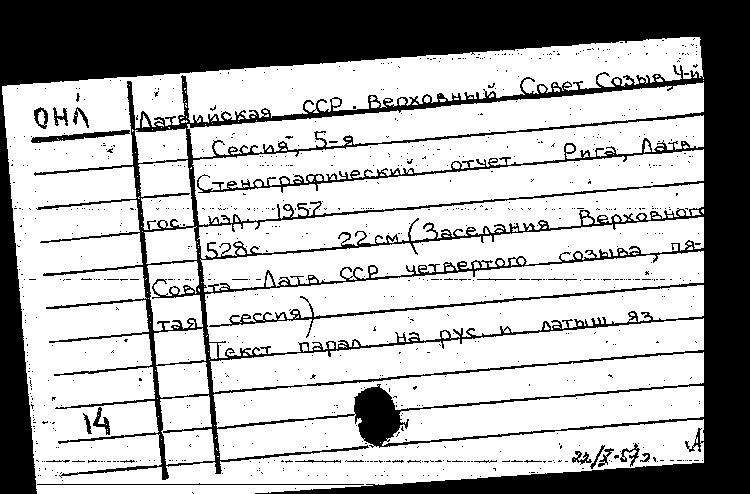 ОНЛ
Латвийская ССР. Верховный Совет Созыв, 4-й
Сессия, 5-я
Стенографический отчет. Рига, Латв.
гос. изд., 1957.
528с. 22 см. (Заседания Верховного
Совета Латв. ССР четвертого созыва, пя-
тая сессия)
Текст парал. на рус. и латыш. яз.
14
22/X-57г.